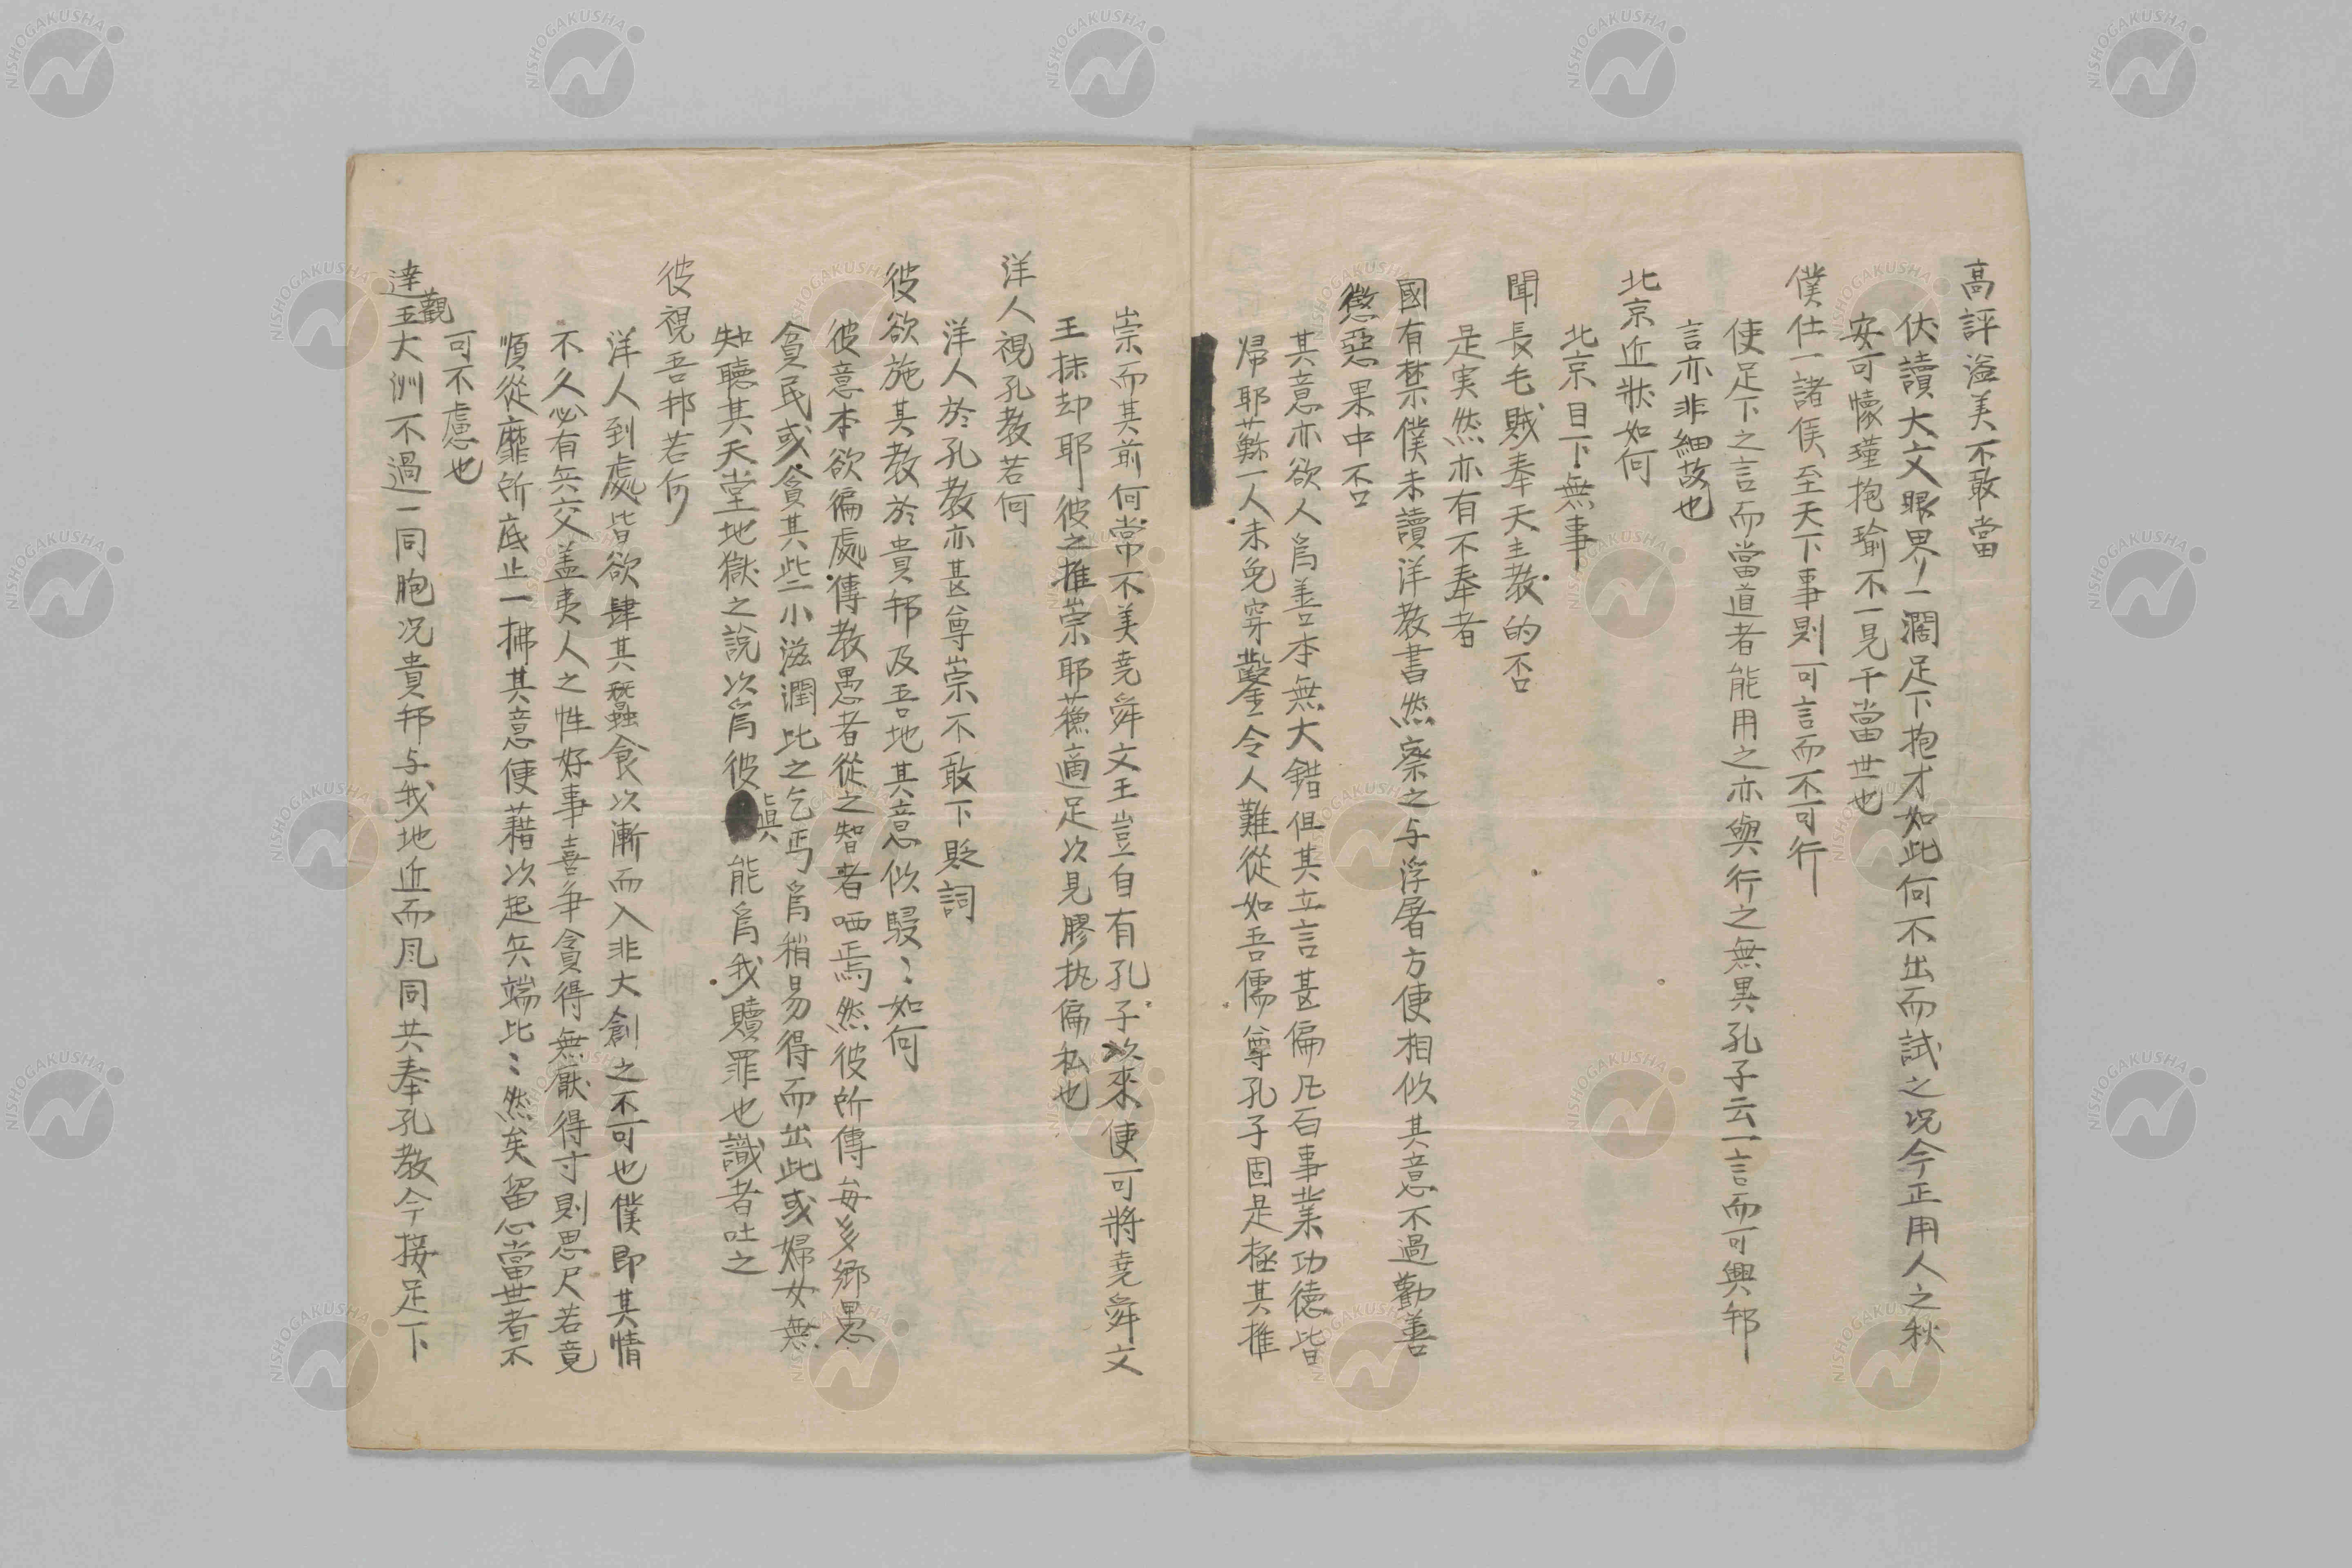 高評溢美不敢當
伏讀大文眼界一濶足下抱才如此何不出而試之况今正用人之秋
安可懐瑾抱瑜不一見于當世也
僕仕一諸侯至天下事則可言而不可行
使足下之言而當道者能用之亦與行之無異孔子云一言而可興邦
言亦非細故也
北京近狀如何
北京目下無事
聞長毛賊奉天主教的否
是実然亦有不奉者
國有禁僕未讀洋教書然察之与浮屠方便相似其意不過勸善
懲惡果中否
其意亦欲人爲善本無大錯但其立言甚偏凡百事業功徳皆
帰耶蘇一人未免穿鑿令人難從如吾儒尊孔子固是極其推
崇而其前何常不美堯舜文王豈自有孔子以來便可將堯舜文
王抹却耶彼之推崇耶蘓適足以見膠执偏私也
洋人視孔教若何
洋人於孔教亦甚尊崇不敢下貶詞
彼欲施其教於貴邦及吾地其意似駸〻如何
彼意本欲徧處傳教愚者從之智者哂焉然彼所傳毎多鄉愚
貧民或貪其些小滋潤比之乞丐爲稍易得而出此或婦女無
知聽其天堂地獄之說以爲彼眞能爲我贖罪也識者吐之
彼視吾邦若何
洋人到處皆欲肆其蠶食以漸而入非大創之不可也僕即其情
不久必有兵交盖夷人之性好事喜争貪得無厭得寸則思尺若竟
順從靡所底止一拂其意便藉以起兵端比〻然矣留心當世者不
可不慮也
達觀五大洲不過一同胞况貴邦与我地近而風同共奉孔教今接足下
NISHOGAKUSHA